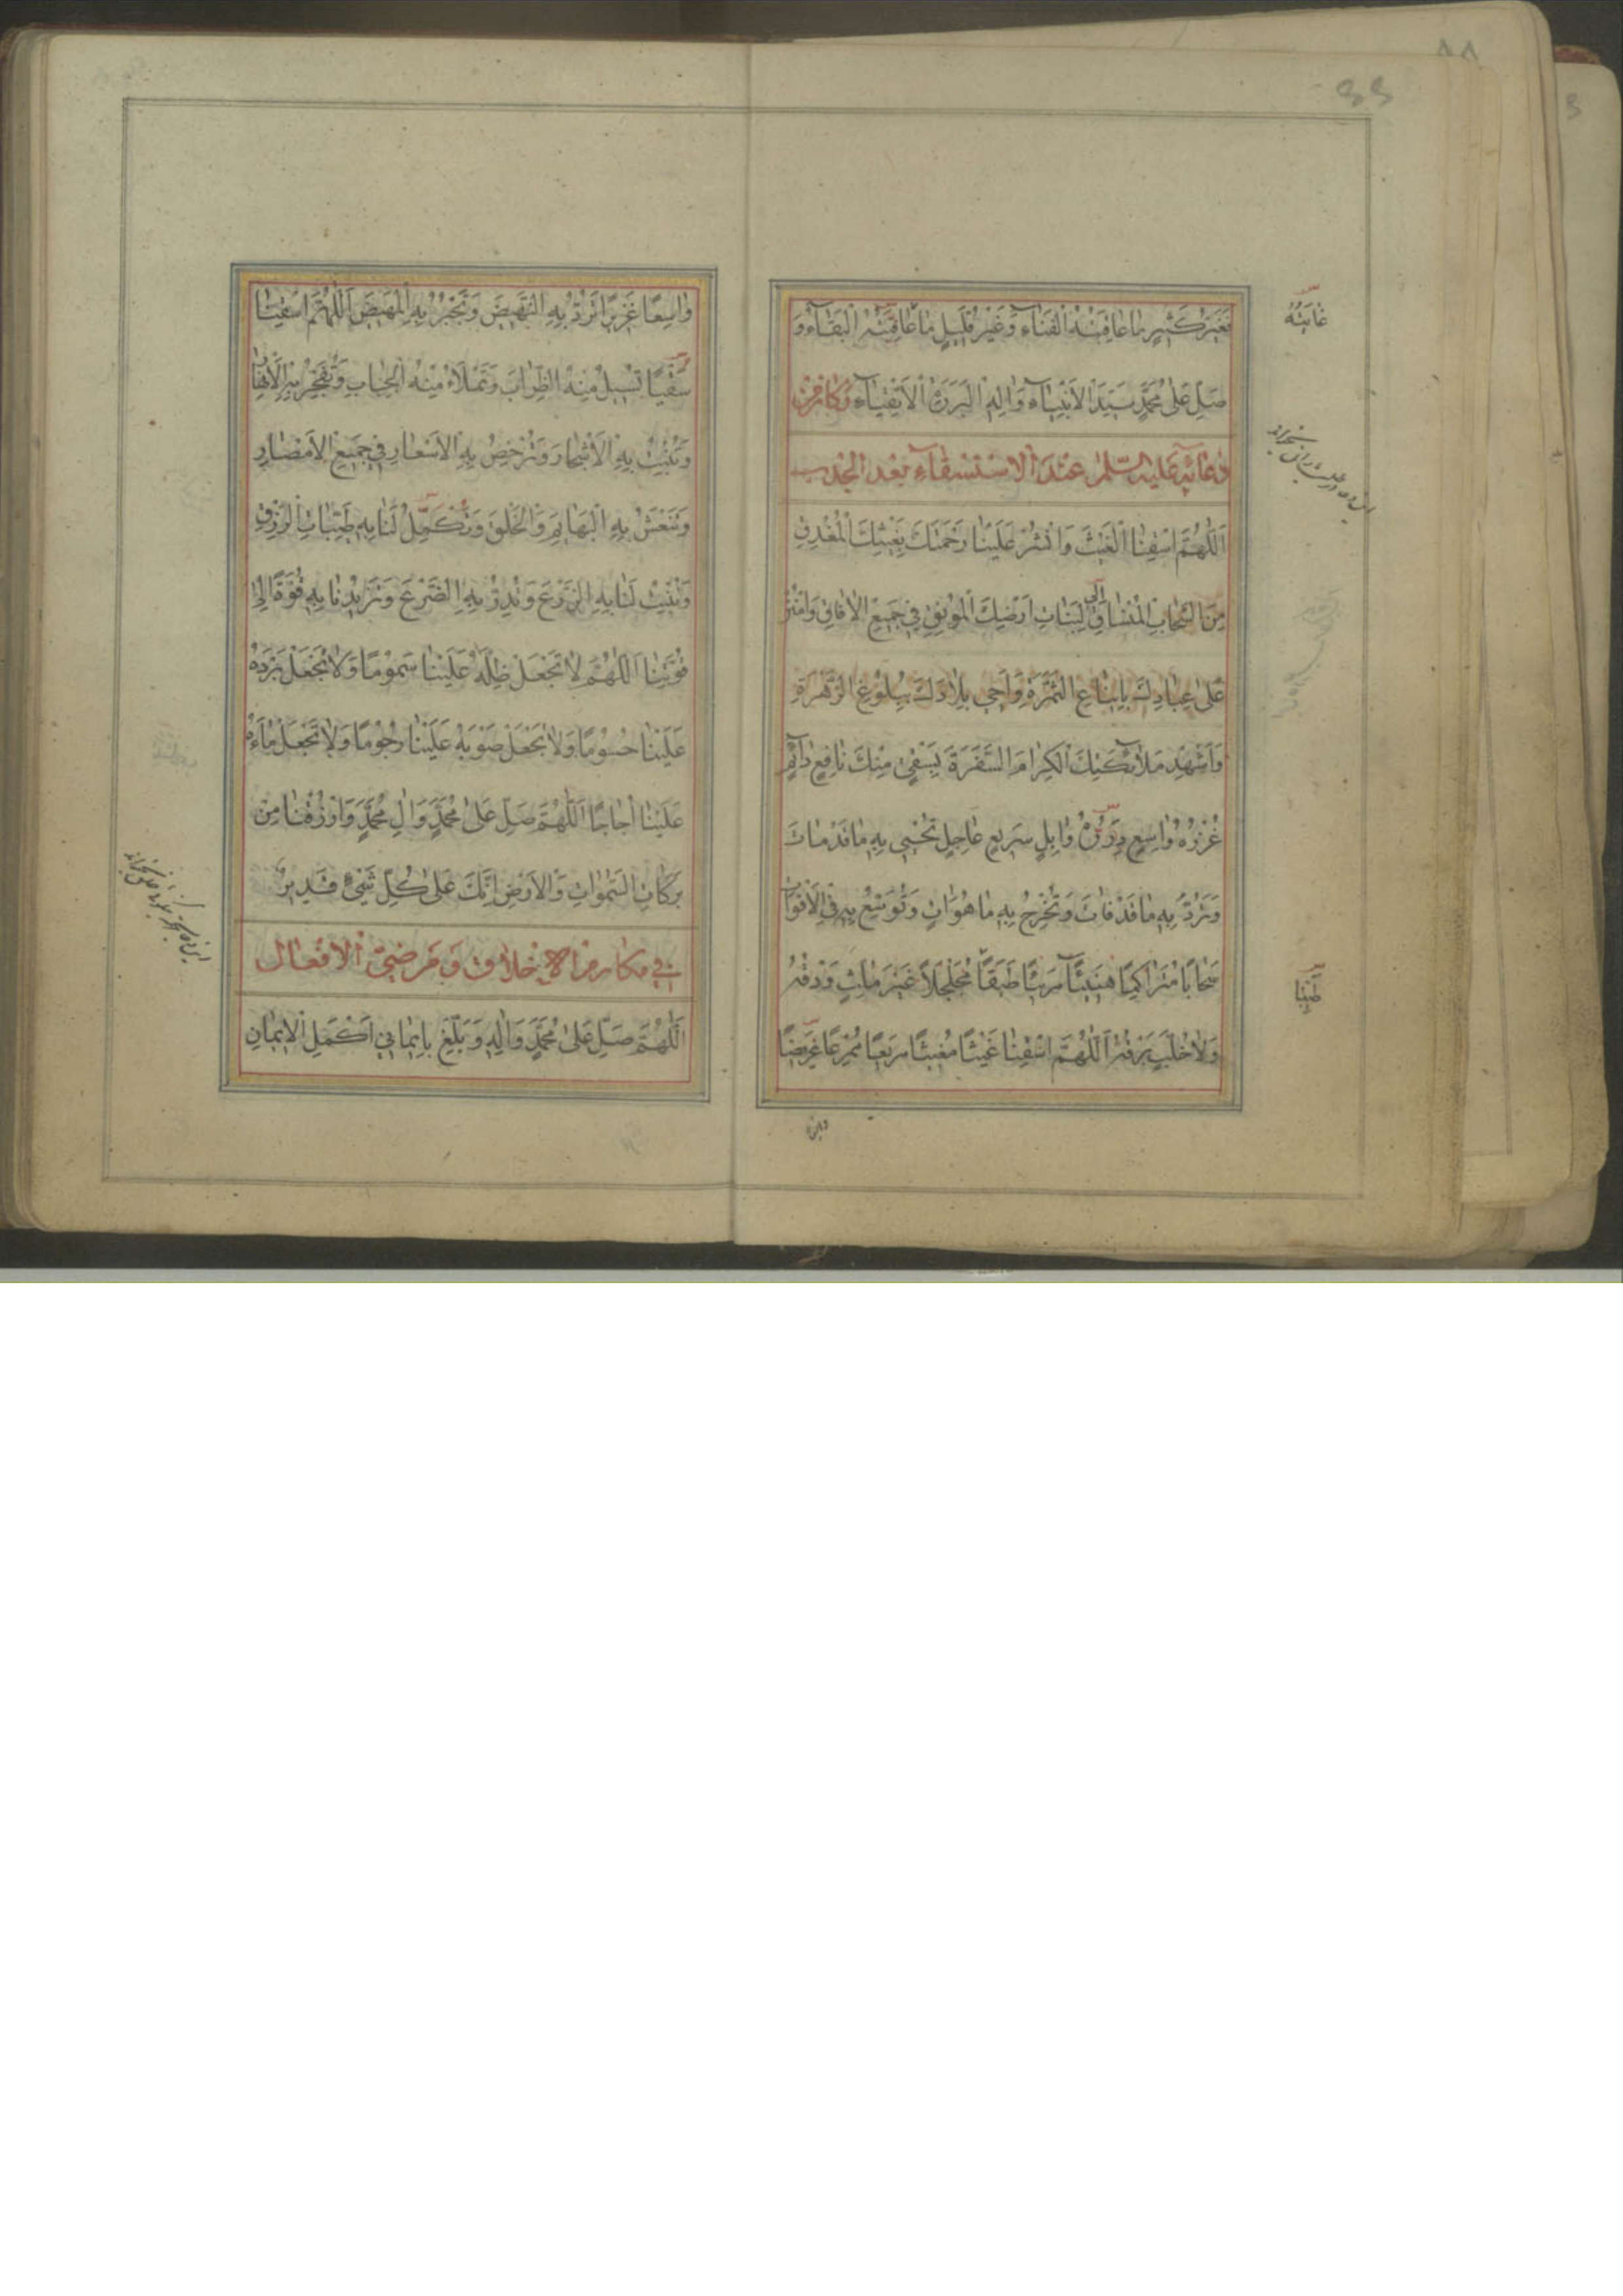 فَغَيْرُ كَثِيرٍ مَا عَاقِبَتُهُ الْفَنَاءُ وَغَيْرُ قَلِيلٍ مَا عَاقِبَتُهُ الْبَقَاءُ وَ
صَلِّ عَلَى مُحَمَّدٍ سَيِّدِ الْأَنْبِيَاءِ وَآلِهِ الْبَرَرَةِ الْأَتْقِيَاءِ وَكَانَ مِنْ
دُعَائِهِ عَلَيْهِ السَّلَامُ عِنْدَ الْاِسْتِسْقَاءِ بَعْدَ الْجَدْبِ
اَللّٰهُمَّ اسْقِنَا الْغَيْثَ وَانْشُرْ عَلَيْنَا رَحْمَتَكَ بِغَيْثِكَ الْمُغْدِقِ
مِنَ السَّحَابِ الْمُنْسَاقِ لِنَبَاتِ أَرْضِكَ الْمُونِقِ فِي جَمِيعِ الْآفَاقِ وَامْنُنْ
عَلَى عِبَادِكَ بِإِينَاعِ الثَّمَرَةِ وَأَحْيِ بِلَادَكَ بِبُلُوغِ الزَّهَرَةِ
وَأَشْهِدْ مَلَائِكَتَكَ الْكِرَامَ السَّفَرَةَ بِسَقْيٍ مِنْكَ نَافِعٍ دَائِمٍ
غُزْرُهُ وَاسِعٍ دِرَرُهُ وَابِلٍ سَرِيعٍ عَاجِلٍ تُحْيِي بِهِ مَا قَدْ مَاتَ
وَتَرُدُّ بِهِ مَا قَدْ فَاتَ وَتُخْرِجُ بِهِ مَا هُوَ آتٍ وَتُوَسِّعُ بِهِ فِي الْأَقْوَاتِ
سَحَابًا مُتَرَاكِمًا هَنِيئًا مَرِيئًا طَبَقًا مُجَلْجَلًا غَيْرَ مُلِثٍّ وَدْقُهُ
وَلَا خُلَّبٍ بَرْقُهُ اَللّٰهُمَّ اسْقِنَا غَيْثًا مُغِيثًا مَرِيعًا مُمْرِعًا عَرِيضًا
وَاسِعًا غَزِيرًا تَرُدُّ بِهِ النَّهِيضَ وَتَجْبُرُ بِهِ الْمَهِيضَ اَللّٰهُمَّ اسْقِنَا
سَقْيًا تُسِيلُ مِنْهُ الظِّرَابَ وَتَمْلَأُ مِنْهُ الْجِبَابَ وَتُفَجِّرُ بِهِ الْأَنْهَارَ
وَتُنْبِتُ بِهِ الْأَشْجَارَ وَتُرْخِصُ بِهِ الْأَسْعَارَ فِي جَمِيعِ الْأَمْصَارِ
وَتَنْعَشُ بِهِ الْبَهَائِمَ وَالْخَلْقَ وَتُكَمِّلُ لَنَا بِهِ طَيِّبَاتِ الرِّزْقِ
وَتُنْبِتُ لَنَا بِهِ الزَّرْعَ وَتُدِرُّ بِهِ الضَّرْعَ وَتَزِيدُنَا بِهِ قُوَّةً إِلَى
قُوَّتِنَا اَللّٰهُمَّ لَا تَجْعَلْ ظِلَّهُ عَلَيْنَا سَمُومًا وَلَا تَجْعَلْ بَرْدَهُ
عَلَيْنَا حُسُومًا وَلَا تَجْعَلْ صَوْبَهُ عَلَيْنَا رُجُومًا وَلَا تَجْعَلْ مَاءَهُ
عَلَيْنَا أُجَاجًا اَللّٰهُمَّ صَلِّ عَلَى مُحَمَّدٍ وَآلِ مُحَمَّدٍ وَارْزُقْنَا مِنْ
بَرَكَاتِ السَّمٰوَاتِ وَالْأَرْضِ إِنَّكَ عَلَى كُلِّ شَيْءٍ قَدِيرٌ
فِي مَكَارِمِ الْأَخْلَاقِ وَمَرْضِيِّ الْأَفْعَالِ
اَللّٰهُمَّ صَلِّ عَلَى مُحَمَّدٍ وَآلِهِ وَبَلِّغْ بِإِيمَانِي أَكْمَلَ الْإِيمَانِ